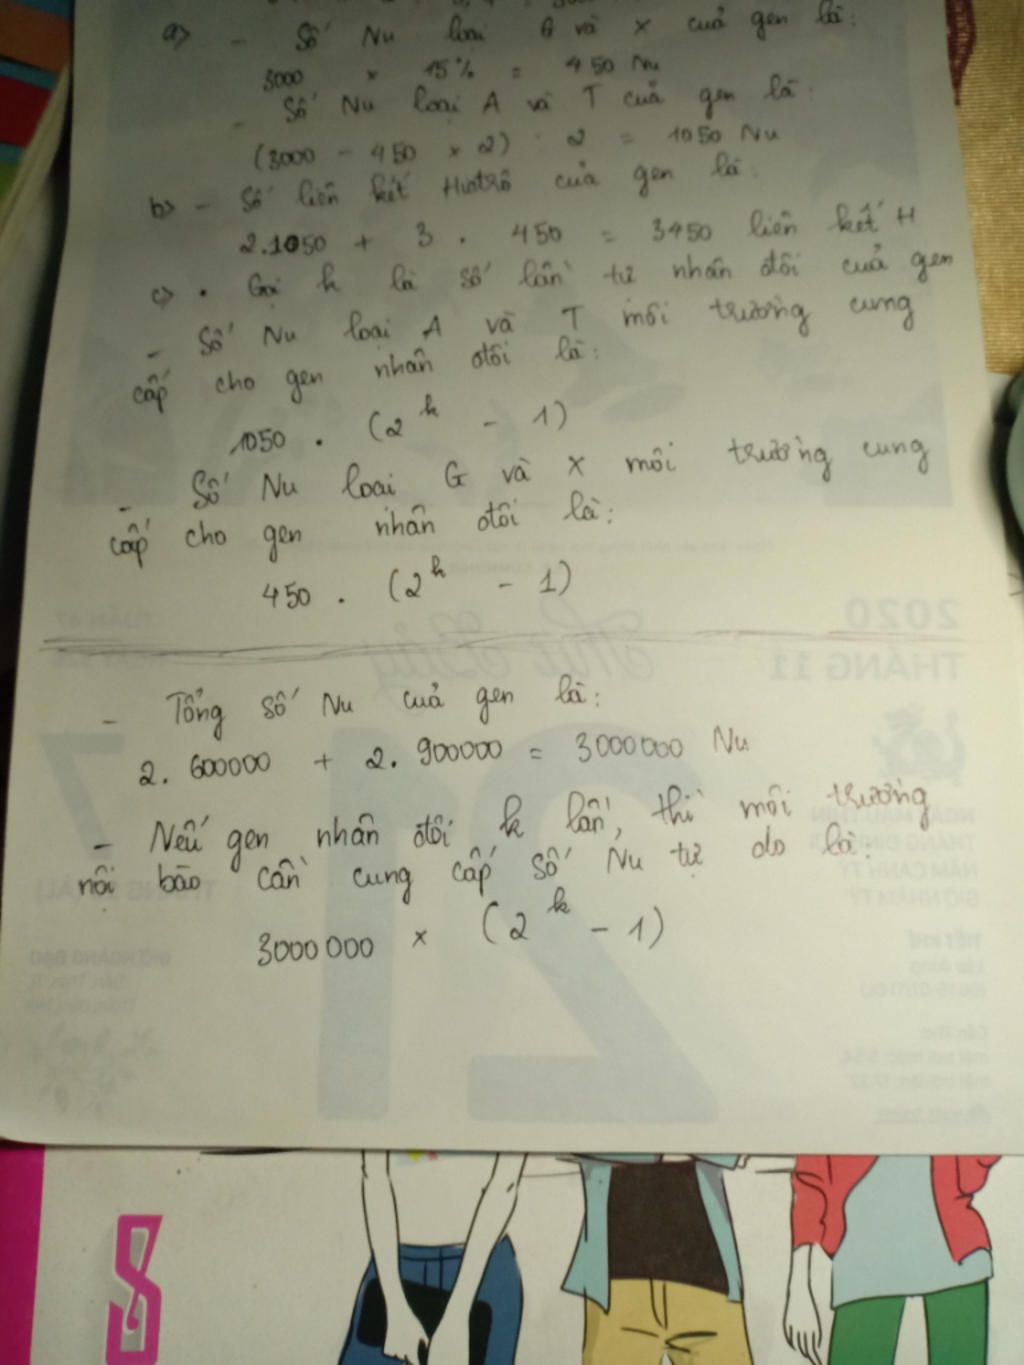 a> - Số Nu loại G và X cuả gen là:
3000 x 15% = 450 Nu
- Số Nu loại A và T cuả gen là:
(3000 - 450 x 2) : 2 = 1050 Nu
b> - Số liên kết Hiđrô của gen là:
2.1050 + 3 . 450 = 3450 liên kết H
c> . Gọi k là số lần tự nhân đôi cuả gen
- Số Nu loại A và T môi trường cung
cấp cho gen nhân đôi là:
1050 . (2^k - 1)
- Số Nu loại G và X môi trường cung
cấp cho gen nhân đôi là:
450 . (2^k - 1)
- Tổng số Nu cuả gen là:
2. 600000 + 2. 900000 = 3000000 Nu
- Nếu gen nhân đôi k lần, thì môi trường
nội bào cần cung cấp số Nu tự do là:
3000000 x (2^k - 1)
2020
THÁNG 11
Thứ Bảy
21
7